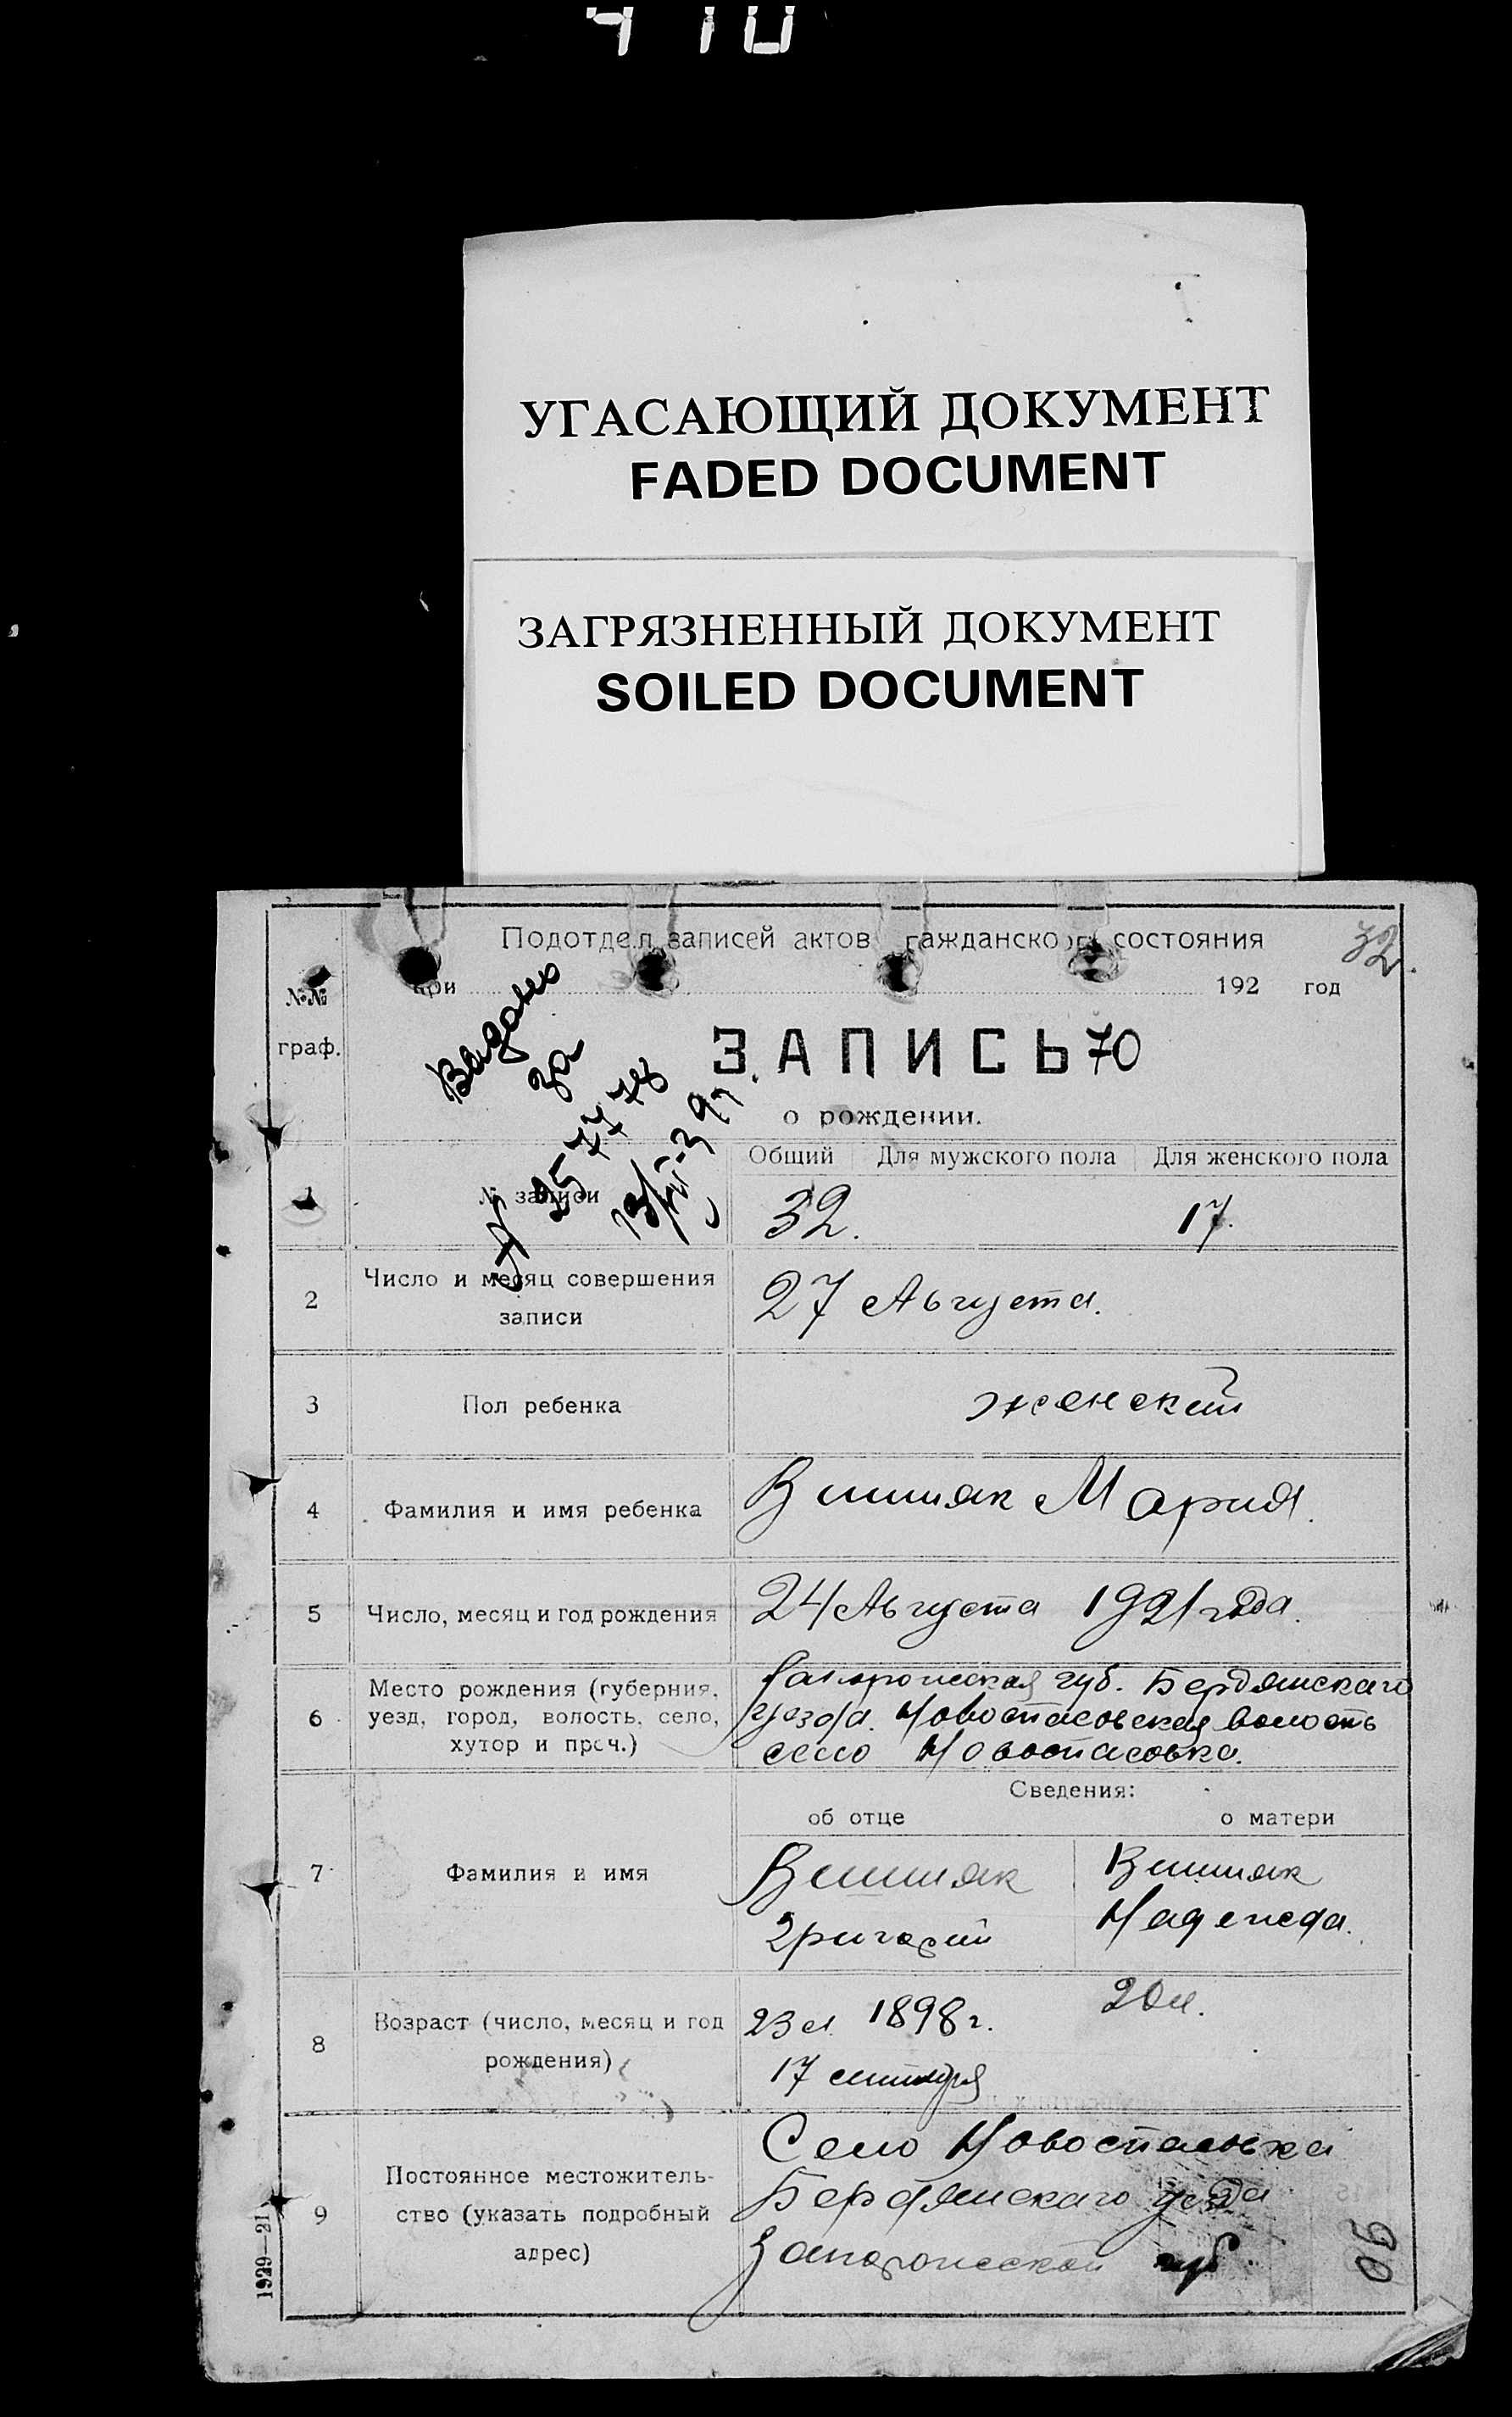 УГАСАЮЩИЙ ДОКУМЕНТ
FADED DOCUMENT
ЗАГРЯЗНЕННЫЙ ДОКУМЕНТ
SOILED DOCUMENT
Подотдел записей актов гражданского состояния
32.
при 192 год
№№ граф.
ЗАПИСЬ 70
о рождении.
Общий Для мужского пола Для женского пола
1 № записи 32. 17.
2 Число и месяц совершения записи 27 Августа.
3 Пол ребенка женский
4 Фамилия и имя ребенка Вишняк Мария.
5 Число, месяц и год рождения 24 Августа 1921 года.
6 Место рождения (губерния, уезд, город, волость, село, хутор и проч.)
губ. Бердянскаго
уезда. Новоспасовская волость
село Новоспасовка.
Сведения:
об отце о матери
7 Фамилия и имя
Вишняк Вишняк
Григорий Надежда.
8 Возраст (число, месяц и год рождения)
1898 г.
17
9 Постоянное местожительство (указать подробный адрес)
Село Новоспасовка
Бердянскаго уезда
Запорожской губ